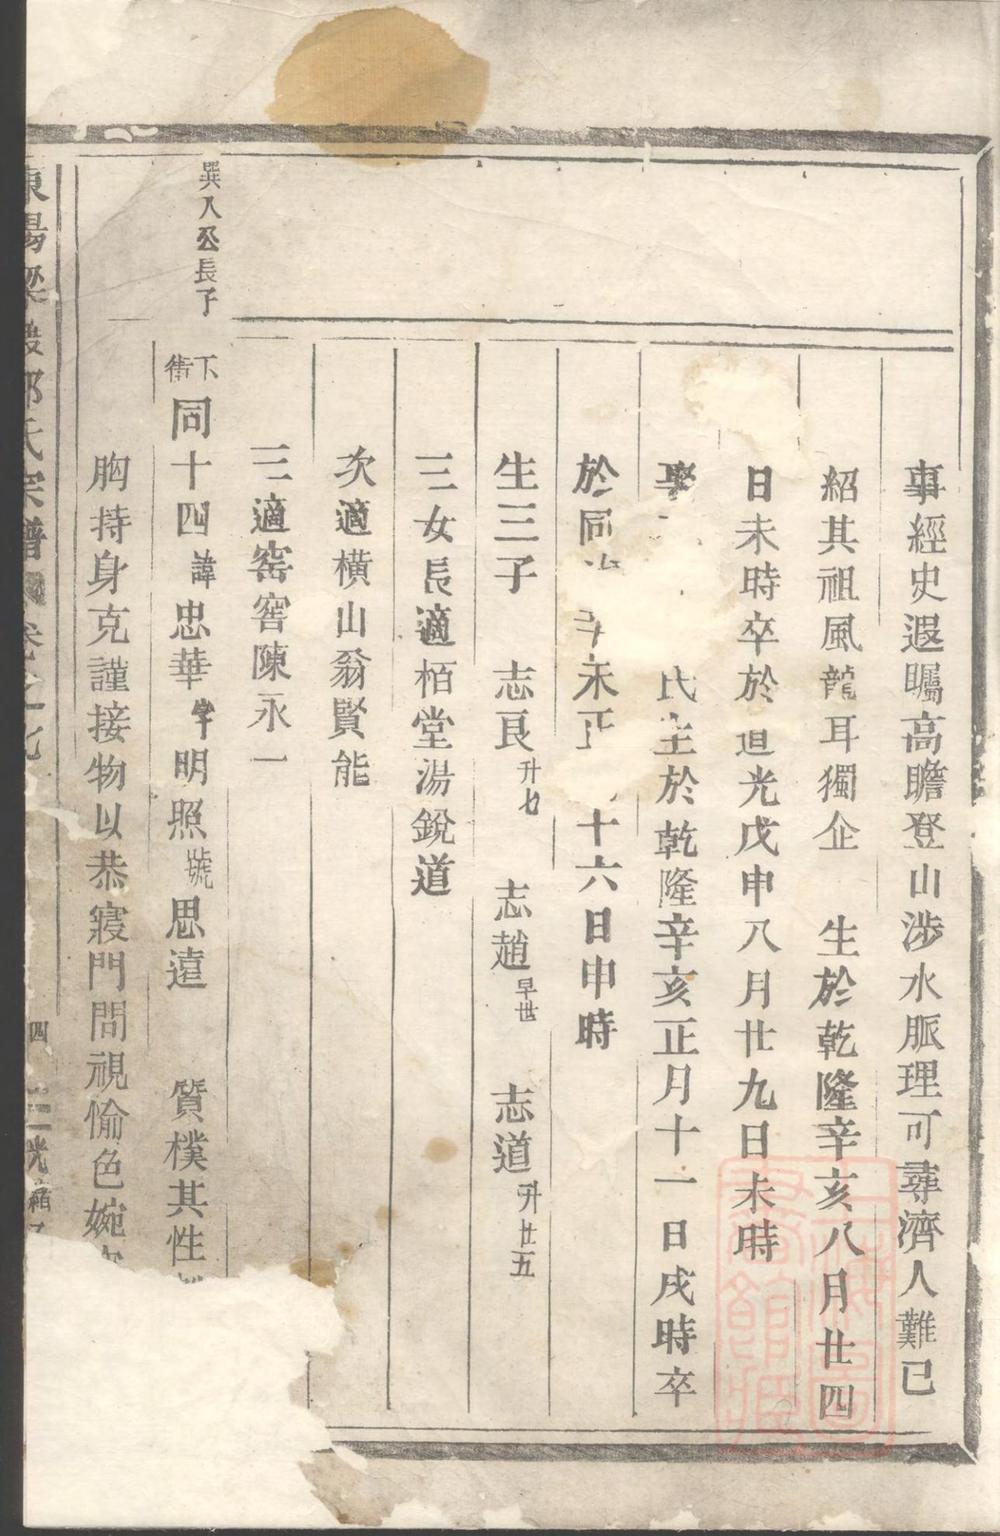 事經史遐矚高瞻登山涉水脈理可尋濟人難已
紹其祖風龍耳獨企　生於乾隆辛亥八月廿四
日未時卒於道光戊申八月廿九日未時
娶　氏生於乾隆辛亥正月十一日戌時卒
於同　辛未正　十六日申時
生三子　志良升七　志趙早世　志道升廿五
三女長適栢堂湯銳道
次適橫山翁賢能
三適窑窖陳永一
巽八公長子
下衙同十四諱忠華字明照號思遠　質樸其性
胸持身克謹接物以恭寢門問視愉色婉
東陽梁　氏宗譜　卷之　四